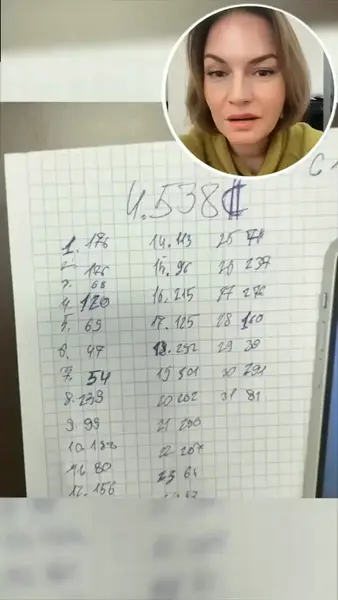 4.538₵
1. 176 14. 113 25 78
2. 176 15. 96 26 237
3. 68
4. 120 16. 215 27 276
5. 69 17. 125 28 160
6. 47 18. 292 29 39
7. 54 19 301 30 291
8. 239 20 202 31 81
9. 99 21 290
10. 22 207
11. 80 23 64
12. 156